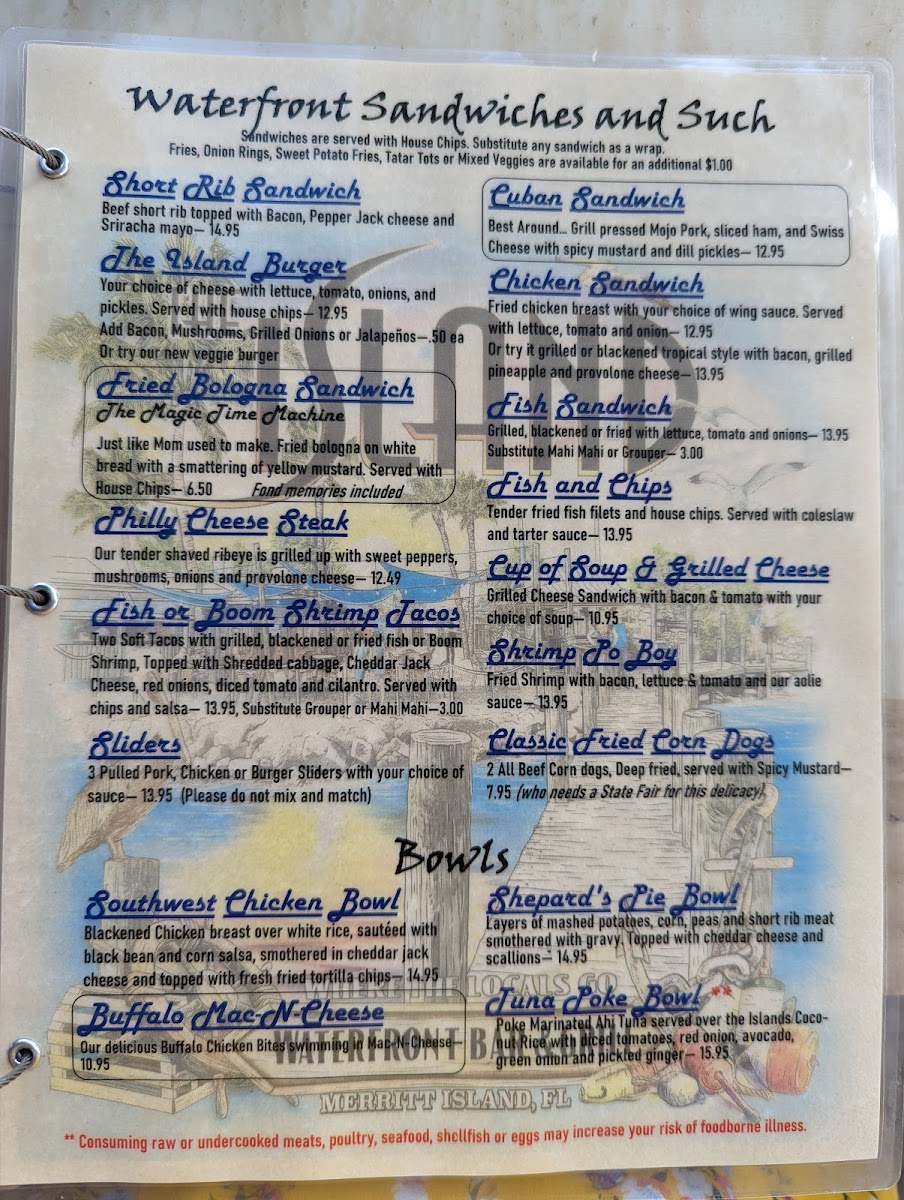 Waterfront Sandwiches and Such
Sandwiches are served with House Chips. Substitute any sandwich as a wrap.
Fries, Onion Rings, Sweet Potato Fries, Tatar Tots or Mixed Veggies are available for an additional $1.00
Short Rib Sandwich
Beef short rib topped with Bacon, Pepper Jack cheese and
Sriracha mayo— 14.95
The Island Burger
Your choice of cheese with lettuce, tomato, onions, and
pickles. Served with house chips— 12.95
Add Bacon, Mushrooms, Grilled Onions or Jalapeños—.50 ea
Or try our new veggie burger
Fried Bologna Sandwich
The Magic Time Machine
Just like Mom used to make. Fried bologna on white
bread with a smattering of yellow mustard. Served with
House Chips— 6.50 Fond memories included
Philly Cheese Steak
Our tender shaved ribeye is grilled up with sweet peppers,
mushrooms, onions and provolone cheese— 12.49
Fish or Boom Shrimp Tacos
Two Soft Tacos with grilled, blackened or fried fish or Boom
Shrimp, Topped with Shredded cabbage, Cheddar Jack
Cheese, red onions, diced tomato and cilantro. Served with
chips and salsa— 13.95, Substitute Grouper or Mahi Mahi—3.00
Sliders
3 Pulled Pork, Chicken or Burger Sliders with your choice of
sauce— 13.95 (Please do not mix and match)
Cuban Sandwich
Best Around... Grill pressed Mojo Pork, sliced ham, and Swiss
Cheese with spicy mustard and dill pickles— 12.95
Chicken Sandwich
Fried chicken breast with your choice of wing sauce. Served
with lettuce, tomato and onion— 12.95
Or try it grilled or blackened tropical style with bacon, grilled
pineapple and provolone cheese— 13.95
Fish Sandwich
Grilled, blackened or fried with lettuce, tomato and onions— 13.95
Substitute Mahi Mahi or Grouper— 3.00
Fish and Chips
Tender fried fish filets and house chips. Served with coleslaw
and tarter sauce— 13.95
Cup of Soup & Grilled Cheese
Grilled Cheese Sandwich with bacon & tomato with your
choice of soup— 10.95
Shrimp Po Boy
Fried Shrimp with bacon, lettuce & tomato and our aolie
sauce— 13.95
Classic Fried Corn Dogs
2 All Beef Corn dogs, Deep fried, served with Spicy Mustard—
7.95 (who needs a State Fair for this delicacy)
Bowls
Southwest Chicken Bowl
Blackened Chicken breast over white rice, sautéed with
black bean and corn salsa, smothered in cheddar jack
cheese and topped with fresh fried tortilla chips— 14.95
Buffalo Mac-N-Cheese
Our delicious Buffalo Chicken Bites swimming in Mac-N-Cheese—
10.95
Shepard's Pie Bowl
Layers of mashed potatoes, corn, peas and short rib meat
smothered with gravy. Topped with cheddar cheese and
scallions— 14.95
Tuna Poke Bowl **
Poke Marinated Ahi Tuna served over the Islands Coco-
nut Rice with diced tomatoes, red onion, avocado,
green onion and pickled ginger— 15.95
ISLAND
WHERE THE LOCALS GO
WATERFRONT BAR
MERRITT ISLAND, FL
** Consuming raw or undercooked meats, poultry, seafood, shellfish or eggs may increase your risk of foodborne illness.